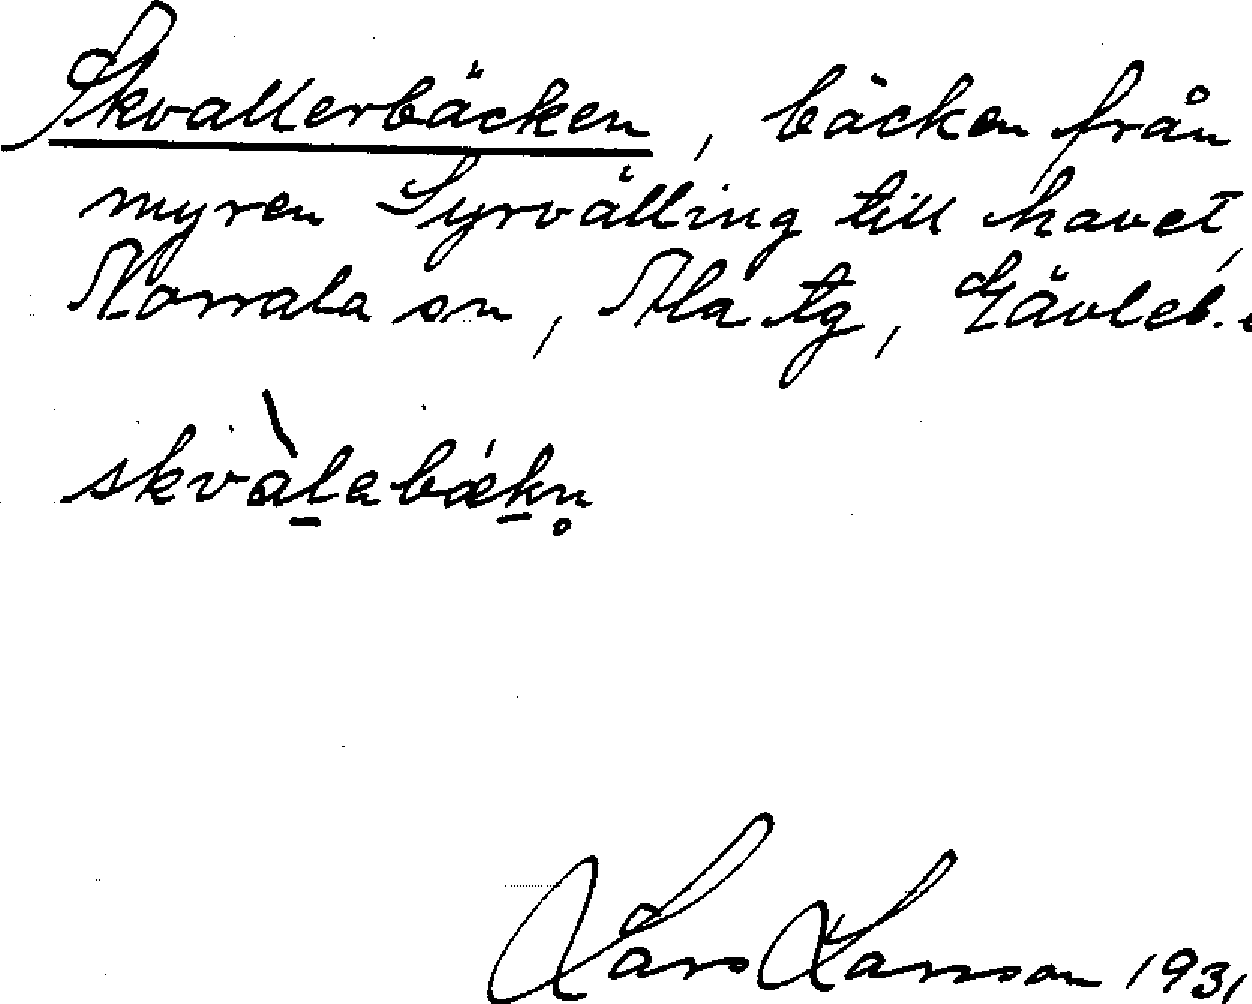 Skvallerbäcken, bäcken från
myren Syrvålling till havet,
Norrala sn, Ala tg, Gävleb.
skvàlabǽkn̥
Lars Larsson 1931